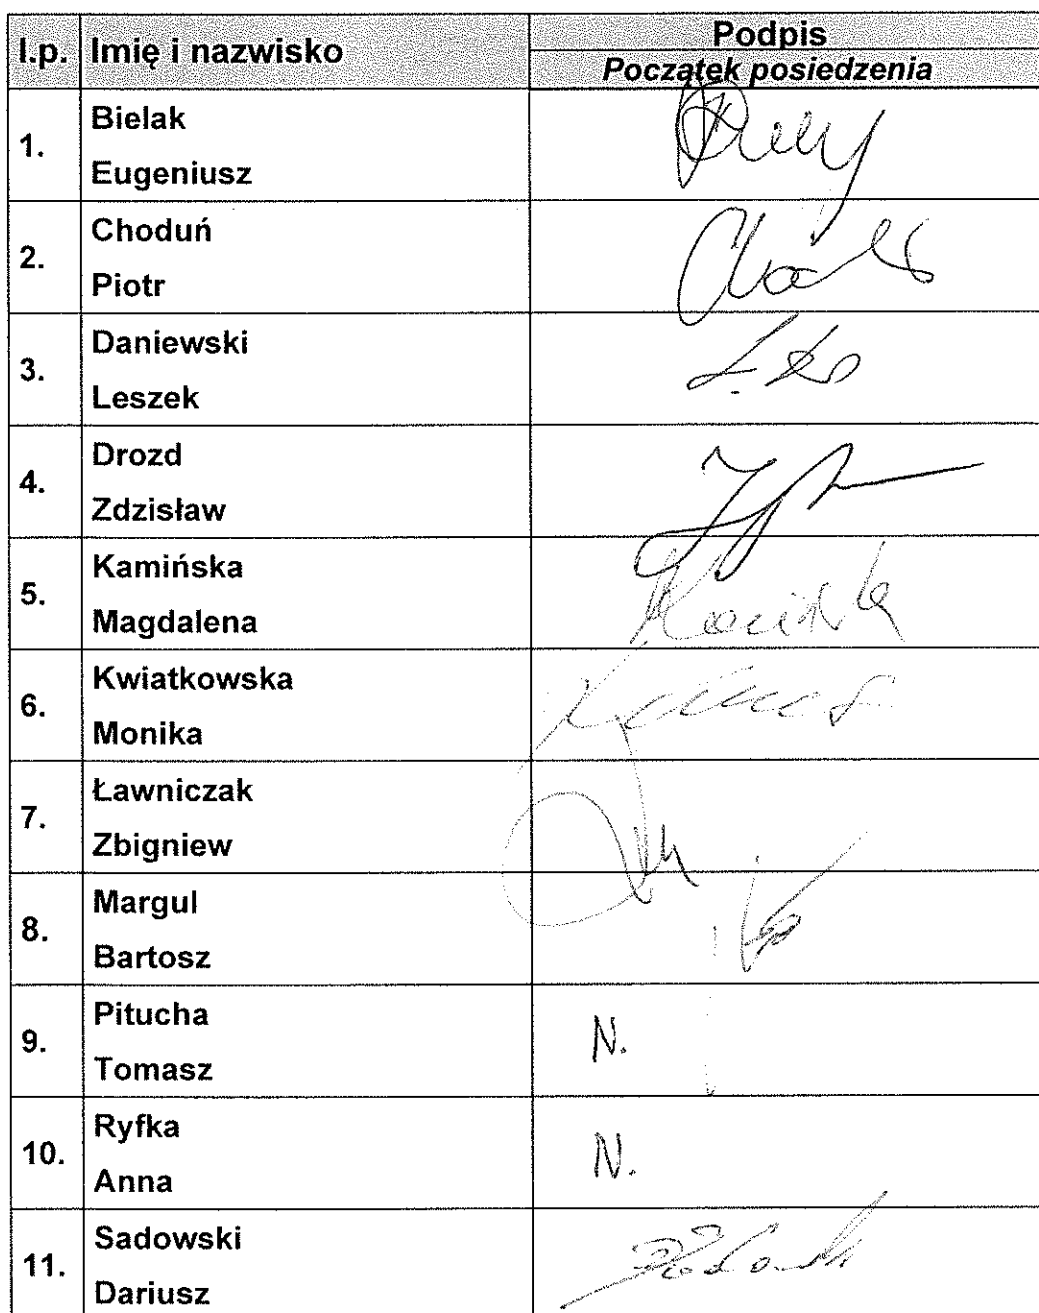 l.p. Imię i nazwisko Podpis
Początek posiedzenia
1. Bielak
Eugeniusz
2. Choduń
Piotr
3. Daniewski
Leszek
4. Drozd
Zdzisław
5. Kamińska
Magdalena
6. Kwiatkowska
Monika
7. Ławniczak
Zbigniew
8. Margul
Bartosz
9. Pitucha
Tomasz
N.
10. Ryfka
Anna
N.
11. Sadowski
Dariusz